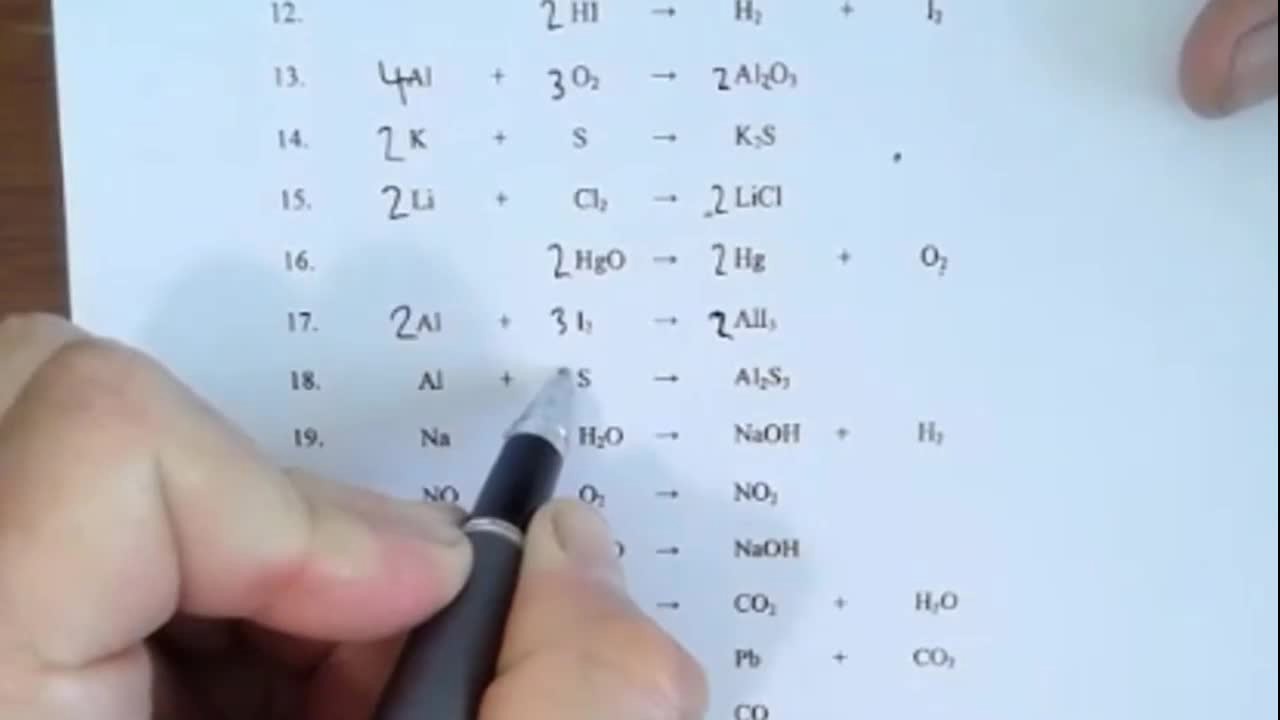 12. 2 HI → H₂ + I₂
13. 4 Al + 3 O₂ → 2 Al₂O₃
14. 2 K + S → K₂S
15. 2 Li + Cl₂ → 2 LiCl
16. 2 HgO → 2 Hg + O₂
17. 2 Al + 3 I₂ → 2 AlI₃
18. Al + S → Al₂S₃
19. Na H₂O → NaOH + H₂
NO O₂ → NO₂
→ NaOH
→ CO₂ + H₂O
Pb + CO₂
CO